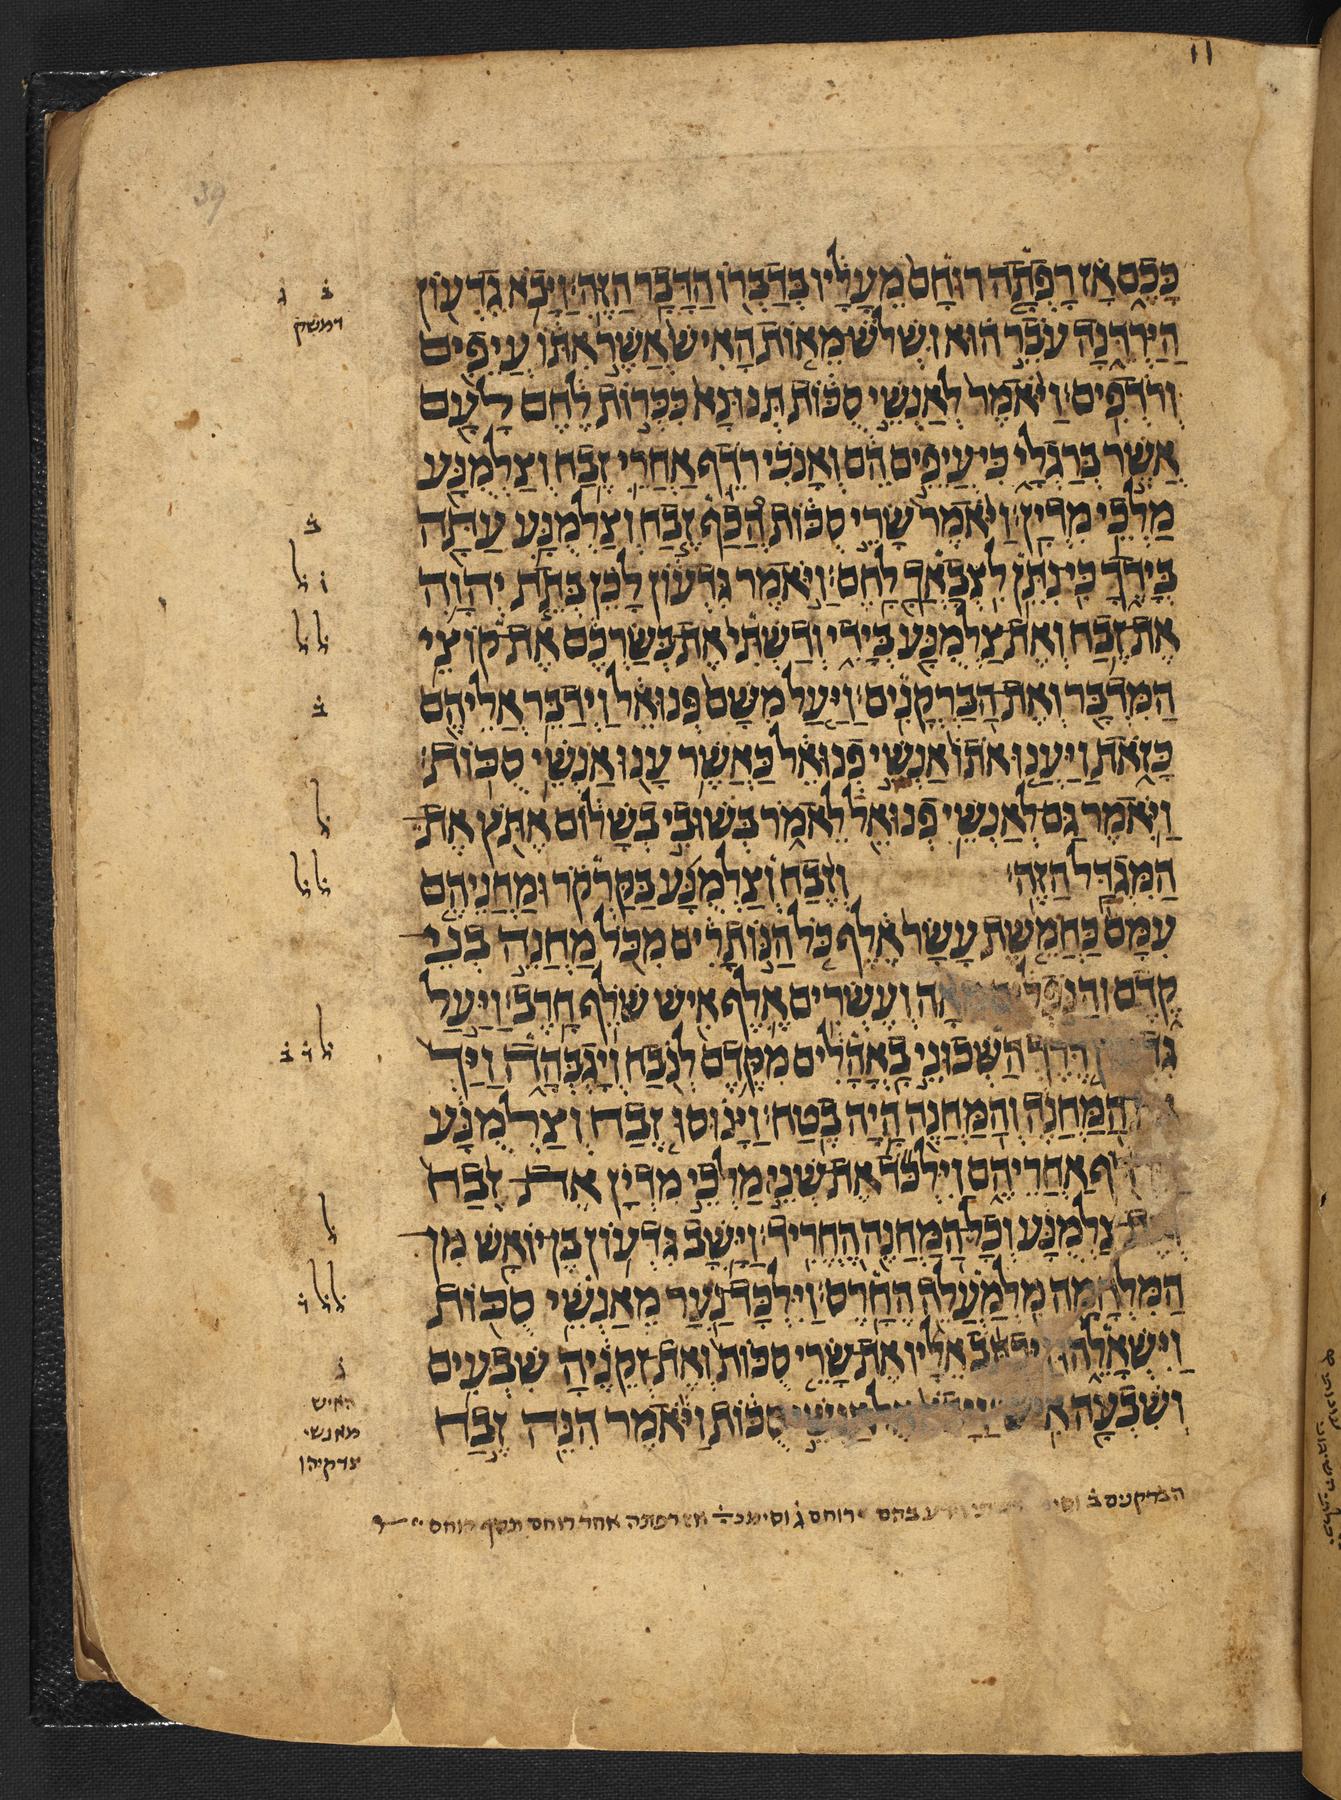 כָּכֶם אָז רָפְתָה רוּחָם מֵעָלָיו בְּדַבְּרוֹ הַדָּבָר הַזֶּה׃ וַיָּבֹא גִדְעוֹן
הַיַּרְדֵּנָה עֹבֵר הוּא וּשְׁלֹשׁ מֵאוֹת הָאִישׁ אֲשֶׁר אִתּוֹ עֲיֵפִים
וְרֹדְפִים׃ וַיֹּאמֶר לְאַנְשֵׁי סֻכּוֹת תְּנוּ נָא כִּכְּרוֹת לֶחֶם לָעָם
אֲשֶׁר בְּרַגְלָי כִּי עֲיֵפִים הֵם וְאָנֹכִי רֹדֵף אַחֲרֵי זֶבַח וְצַלְמֻנָּע
מַלְכֵי מִדְיָן׃ וַיֹּאמֶר שָׂרֵי סֻכּוֹת הֲכַף זֶבַח וְצַלְמֻנָּע עַתָּה
בְּיָדֶךָ כִּי נִתֵּן לִצְבָאֲךָ לָחֶם׃ וַיֹּאמֶר גִּדְעוֹן לָכֵן בְּתֵת יְהוָה
אֶת זֶבַח וְאֶת צַלְמֻנָּע בְּיָדִי וְדַשְׁתִּי אֶת בְּשַׂרְכֶם אֶת קוֹצֵי
הַמִּדְבָּר וְאֶת הַבַּרְקֳנִים׃ וַיַּעַל מִשָּׁם פְּנוּאֵל וַיְדַבֵּר אֲלֵיהֶם
כָּזֹאת וַיַּעֲנוּ אֹתוֹ אַנְשֵׁי פְנוּאֵל כַּאֲשֶׁר עָנוּ אַנְשֵׁי סֻכּוֹת׃
וַיֹּאמֶר גַּם לְאַנְשֵׁי פְנוּאֵל לֵאמֹר בְּשׁוּבִי בְשָׁלוֹם אֶתֹּץ אֶת
הַמִּגְדָּל הַזֶּה׃ וְזֶבַח וְצַלְמֻנָּע בַּקַּרְקֹר וּמַחֲנֵיהֶם
עִמָּם כַּחֲמֵשֶׁת עָשָׂר אֶלֶף כֹּל הַנּוֹתָרִים מִכֹּל מַחֲנֵה בְנֵי
קֶדֶם וְהַנֹּפְלִים אָה וְעֶשְׂרִים אֶלֶף אִישׁ שֹׁלֵף חָרֶב׃ וַיַּעַל
גִּדְעוֹן דֶּרֶךְ הַשְּׁכוּנֵי בָאֳהָלִים מִקֶּדֶם לְנֹבַח וְיָגְבֳּהָה וַיַּךְ
הַמַּחֲנֶה וְהַמַּחֲנֶה הָיָה בֶטַח׃ וַיָּנוּסוּ זֶבַח וְצַלְמֻנָּע
ף אַחֲרֵיהֶם וַיִּלְכֹּד אֶת שְׁנֵי מַלְכֵי מִדְיָן אֶת זֶבַח
וְאֶת צַלְמֻנָּע וְכָל הַמַּחֲנֶה הֶחֱרִיד׃ וַיָּשָׁב גִּדְעוֹן בֶּן יוֹאָשׁ מִן
הַמִּלְחָמָה מִלְמַעֲלֵה הֶחָרֶס׃ וַיִּלְכָּד נַעַר מֵאַנְשֵׁי סֻכּוֹת
וַיִּשְׁאָלֵהוּ וַיִּכְתֹּב אֵלָיו אֶת שָׂרֵי סֻכּוֹת וְאֶת זְקֵנֶיהָ שִׁבְעִים
וְשִׁבְעָה אִישׁ׃ וַיָּבֹא אֶל אַנְשֵׁי סֻכּוֹת וַיֹּאמֶר הִנֵּה זֶבַח
הברקנים ב רוחם ג וסימנה אז רפתה אחר רוחם תסף רוחם
ב ג
דמשק
ב
ו ל
ל ל
ב
ל
ל ל
ל ו ב
ל
ל ל ו
ג
האיש
מאנשי
צדקיהו
39